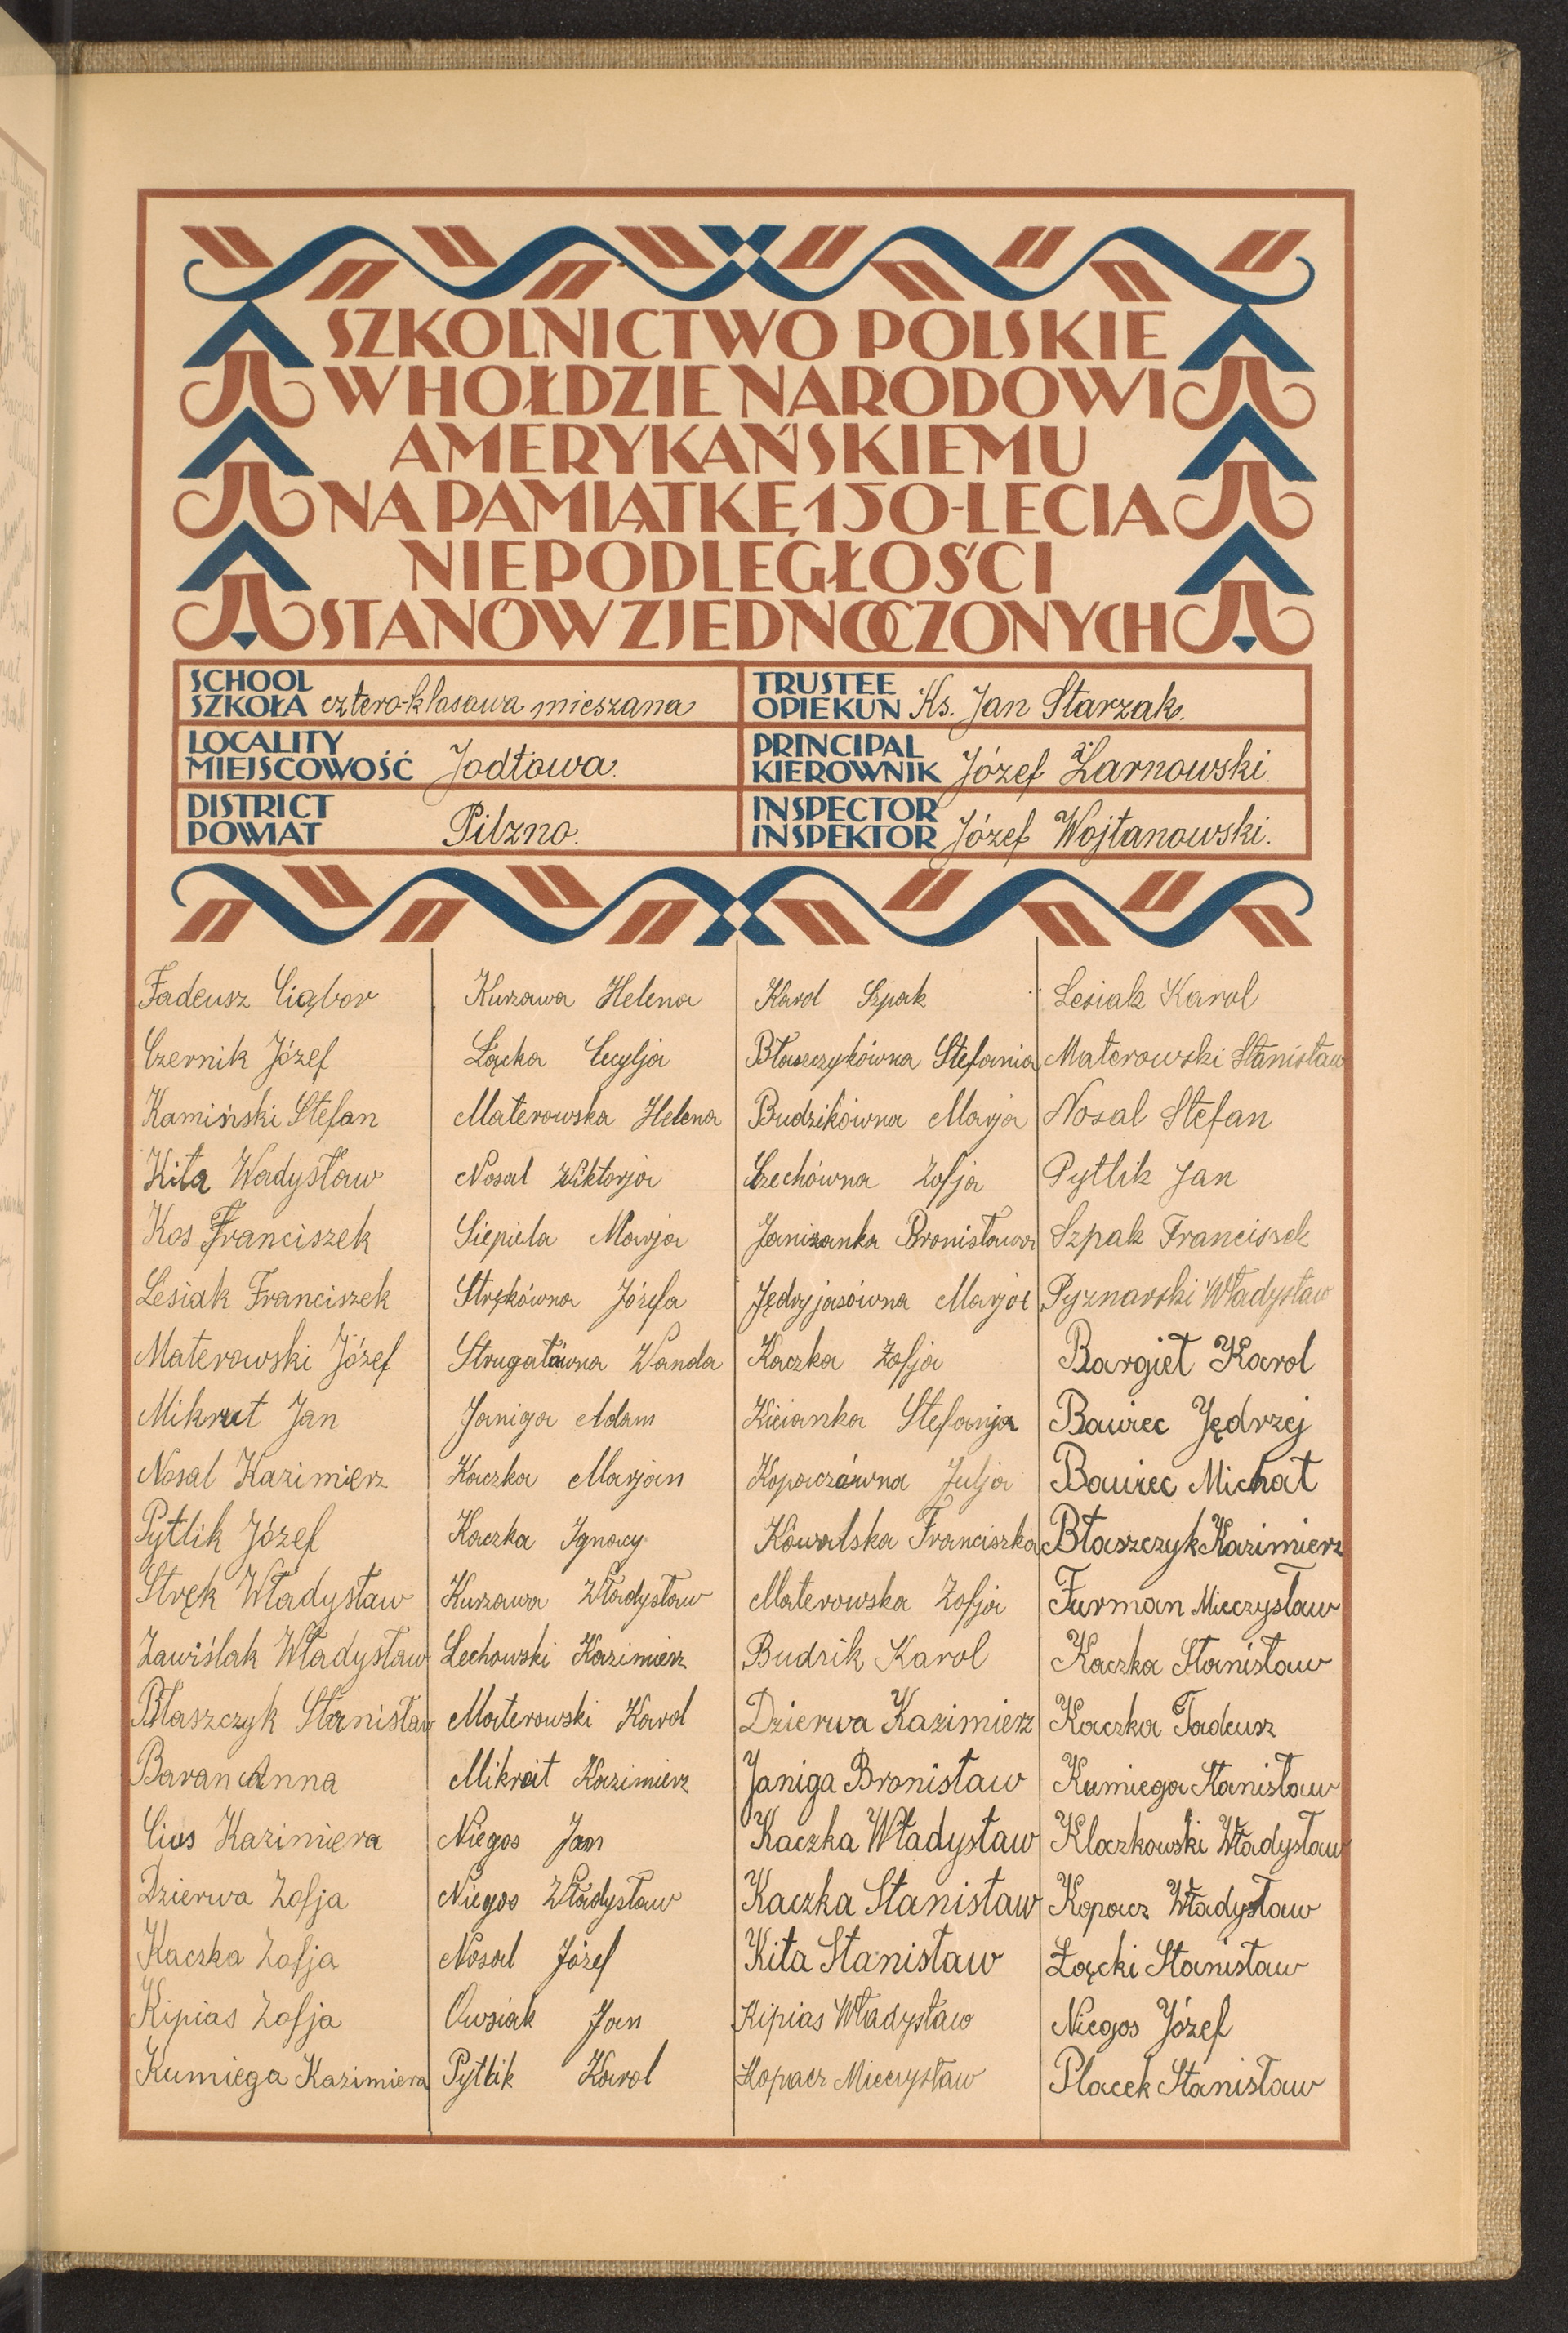 SZKOLNICTWO POLSKIE
W HOŁDZIE NARODOWI
AMERYKAŃSKIEMU
NA PAMIĄTKĘ 150-LECIA
NIEPODLEGŁOŚCI
STANÓW ZJEDNOCZONYCH
SCHOOL
SZKOŁA cztero-klasowa mieszana
LOCALITY
MIEJSCOWOŚĆ Jodłowa.
DISTRICT
POWIAT Pilzno.
TRUSTEE
OPIEKUN Ks. Jan Starzak.
PRINCIPAL
KIEROWNIK Józef Żarnowski.
INSPECTOR
INSPEKTOR Józef Wojtanowski.
Tadeusz Ciąbor
Czernik Józef
Kamiński Stefan
Kita Wadysław
Kos Franciszek
Lesiak Franciszek
Materowski Józef
Mikrut Jan
Nosal Kazimierz
Pytlik Józef
Stręk Władysław
Zawiślak Władysław
Błaszczyk Stanisław
Baran Anna
Cius Kazimiera
Dzierwa Zofja
Kaczka Zofja
Kipias Zofja
Kumiega Kazimiera
Kurzawa Helena
Łącka Cecylja
Materowska Helena
Nosal Wiktorja
Siepiela Marja
Strękówna Józefa
Strugałówna Wanda
Janiga Adam
Kaczka Marjan
Kaczka Ignacy
Kurzawa Władysław
Lechowski Kazimierz
Materowski Karol
Mikrut Kazimierz
Niegos Jan
Niegos Władysław
Nosal Józef
Owsiak Jan
Pytlik Karol
Karol Szpak
Błaszczykówna Stefania
Budzikówna Marja
Czechówna Zofja
Janiżanka Bronisława
Jędryjasówna Marja
Kaczka Zofja
Kicianka Stefanja
Kopaczówna Julja
Kowalska Franciszka
Materowska Zofja
Budzik Karol
Dzierwa Kazimierz
Janiga Bronisław
Kaczka Władysław
Kaczka Stanisław
Kita Stanisław
Kipias Władysław
Kopacz Mieczysław
Lesiak Karol
Materowski Stanisław
Nosal Stefan
Pytlik Jan
Szpak Franciszek
Pyznarski Władysław
Bargieł Karol
Baurec Jędrzej
Baurec Michał
Błaszczyk Kazimierz
Furman Mieczysław
Kaczka Stanisław
Kaczka Tadeusz
Kumiega Stanisław
Kloczkowski Władysław
Kopacz Władysław
Łącki Stanisław
Niegos Józef
Placek Stanisław